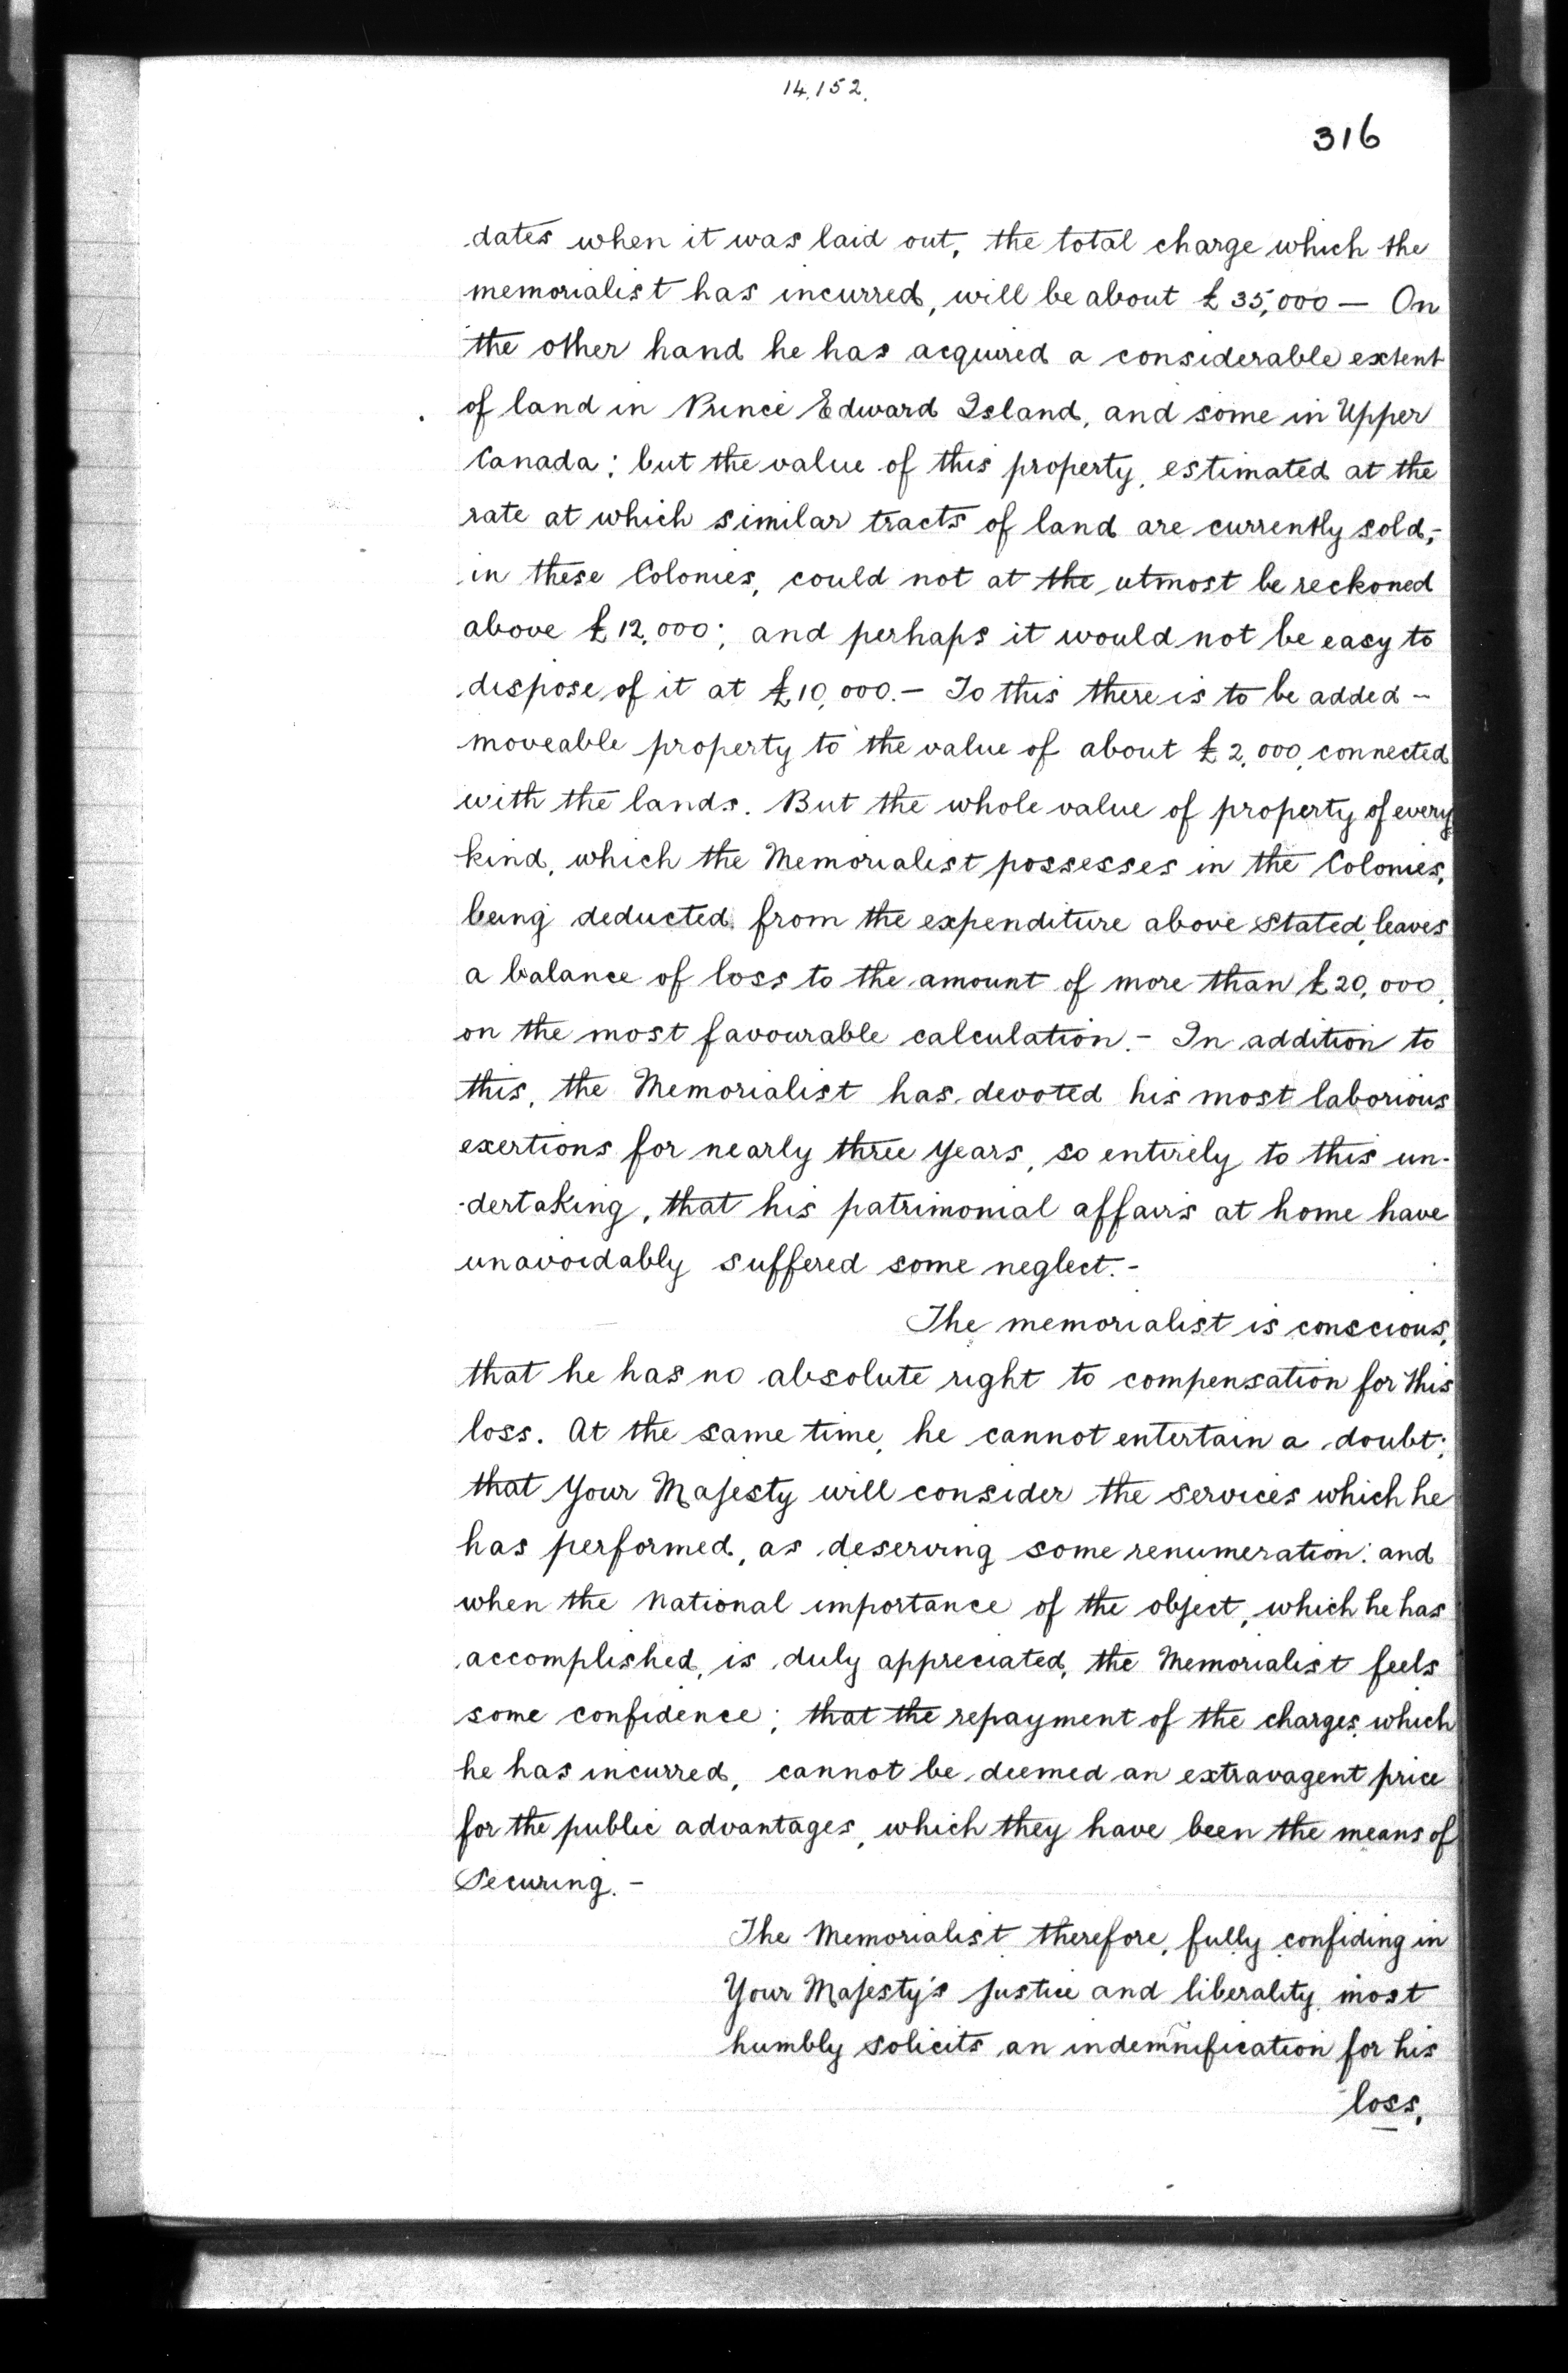 14,152.
316
dates when it was laid out, the total charge which the
memorialist has incurred, will be about £35,000 — On
the other hand he has acquired a considerable extent
of land in Prince Edward Island, and some in Upper
Canada; but the value of this property, estimated at the
rate at which similar tracts of land are currently sold,-
in these Colonies, could not at the utmost be reckoned
above £12,000; and perhaps it would not be easy to
dispose of it at £10,000.- To this there is to be added -
moveable property to the value of about £2,000, connected
with the lands. But the whole value of property of every
kind, which the Memorialist possesses in the Colonies,
being deducted from the expenditure above stated, leaves
a balance of loss to the amount of more than £20,000,
on the most favourable calculation.- In addition to
this, the Memorialist has devoted his most laborious
exertions for nearly three years, so entirely to this un-
-dertaking, that his patrimonial affairs at home have
unavoidably suffered some neglect.-
The memorialist is conscious,
that he has no absolute right to compensation for this
loss. At the same time, he cannot entertain a doubt;
that Your Majesty will consider the services which he
has performed, as deserving some renumeration: and
when the National importance of the object, which he has
accomplished, is duly appreciated, the Memorialist feels
some confidence; that the repayment of the charges, which
he has incurred, cannot be deemed an extravagent price
for the public advantages, which they have been the means of
Securing.-
The Memorialist therefore, fully confiding in
Your Majesty's justice and liberality, most
humbly solicits an indemnification for his
loss,